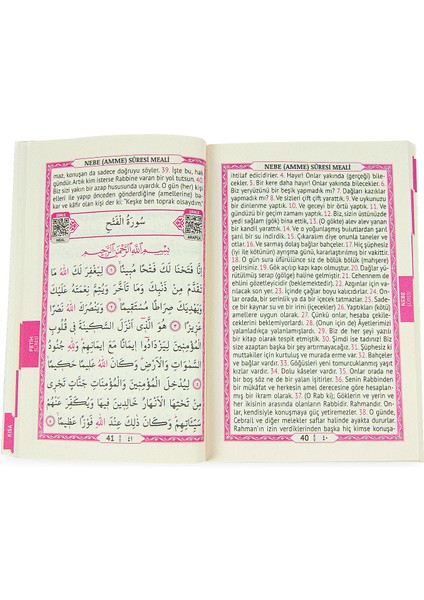 NEBE (AMME) SÛRESİ MEALİ
ihtilaf edicidirler. 4. Hayır! Onlar yakında (gerçeği) bile-
cekler. 5. Bir kere daha hayır! Onlar yakında bilecekler. 6.
Biz yeryüzünü bir beşik yapmadık mı? 7. Dağları kazıklar
yapmadık mı? 8. Ve sizleri çift çift yarattık. 9. Ve uykunuzu
bir dinlenme yaptık. 10. Ve geceyi bir örtü yaptık. 11. Ve
gündüzü bir geçim zamanı yaptık. 12. Biz, sizin üstünüzde
yedi sağlam (gök) bina ettik. 13. (O gökte) alev alev yanan
bir kandil yarattık. 14. Ve o yoğunlaşmış bulutlardan şarıl
şarıl bir su indirdik. 15. Çıkaralım diye onunla taneler ve
otlar. 16. Ve sarmaş dolaş bağlar bahçeler. 17. Hiç şüphesiz
(iyi ile kötünün) ayrışma günü, kararlaştırılmış bir vakittir.
18. O gün sura üfürülünce siz de bölük bölük (mahşere)
gelirsiniz. 19. Gök açılıp kapı kapı olmuştur. 20. Dağlar yü-
rütülmüş serap (gölge) haline gelmiştir. 21. Cehennem de
ehlini gözetleyicidir (beklemektedir). 22. Azgınlar için va-
rılacak son yer. 23. İçinde çağlar boyu kalıcıdırlar. 24. On-
lar orada, bir serinlik ya da bir içecek tatmazlar. 25. Sade-
ce bir kaynar su ve bir irin (içerler). 26. Yaptıkları (kötü-
lüklere) uygun bir ceza olarak. 27. Çünkü onlar, hesaba çekile-
ceklerini beklemiyorlardı. 28. (Onun için de) Âyetlerimizi
yalanladıkça yalanlıyorlardı. 29. Biz de her şeyi yazıp
bir kitap olarak tespit etmiştik. 30. Şimdi ise tadınız! Biz
size azaptan başka bir şey artırmayacağız. 31. Şüphesiz
muttakiler için kurtuluş ve murada erme var. 32. Bahçeler
ve bağlar vardır. 33. Göğüsleri yeni tomurcuklanmış yaşıt
kızlar vardır. 34. Dolu kâseler vardır. 35. Onlar orada ne
bir boş söz ne de bir yalan işitirler. 36. Senin Rabbinden
bir mükâfat ve herkesin amel derecesine göre hesaplan-
mış bir ihsan. 37. (O Rab ki); Göklerin ve yerin ve
her ikisinin arasında olanların Rabbidir. Rahmandır. On-
lar, kendisiyle konuşmaya güç yetiremezler. 38. O günde,
Cebrail ve diğer melekler saflar halinde ayakta dururlar.
Rahman'ın izin verdiklerinden başka hiç kimse konuşa-
40 ٤٠
NEBE SÛRESİ
NEBE (AMME) SÛRESİ MEALİ
maz, konuşan da sadece doğruyu söyler. 39. İşte bu, hak
gündür. Artık kim isterse Rabbine varan bir yol tutsun. 40.
Biz sizi yakın bir azap hususunda uyardık. O gün (her) kişi
elleri ile yapıp önceden gönderdiğine (amellerine) bakar
ve kâfir olan kişi der ki: "Keşke ben toprak olsaydım."
MEAL
سُورَةُ الْفَتْحِ
ARAPÇA
بِسْمِ اللّٰهِ الرَّحْمٰنِ الرَّحِيمِ
اِنَّا فَتَحْنَا لَكَ فَتْحًا مُبِينًا ﴿١﴾ لِيَغْفِرَ لَكَ اللّٰهُ مَا
تَقَدَّمَ مِنْ ذَنْبِكَ وَمَا تَاَخَّرَ وَيُتِمَّ نِعْمَتَهُ عَلَيْكَ
وَيَهْدِيَكَ صِرَاطًا مُسْتَقِيمًا ﴿٢﴾ وَيَنْصُرَكَ اللّٰهُ نَصْرًا
عَزِيزًا ﴿٣﴾ هُوَ الَّذِي اَنْزَلَ السَّكِينَةَ فِي قُلُوبِ
الْمُؤْمِنِينَ لِيَزْدَادُوا اِيمَانًا مَعَ اِيمَانِهِمْ وَلِلّٰهِ جُنُودُ
السَّمٰوَاتِ وَالْاَرْضِ وَكَانَ اللّٰهُ عَلِيمًا حَكِيمًا ﴿٤﴾
لِيُدْخِلَ الْمُؤْمِنِينَ وَالْمُؤْمِنَاتِ جَنَّاتٍ تَجْرِي
مِنْ تَحْتِهَا الْاَنْهَارُ خَالِدِينَ فِيهَا وَيُكَفِّرَ عَنْهُمْ
سَيِّئَاتِهِمْ وَكَانَ ذٰلِكَ عِنْدَ اللّٰهِ فَوْزًا عَظِيمًا ﴿٥﴾
41 ٤١
FETH SÛRESİ
KISA